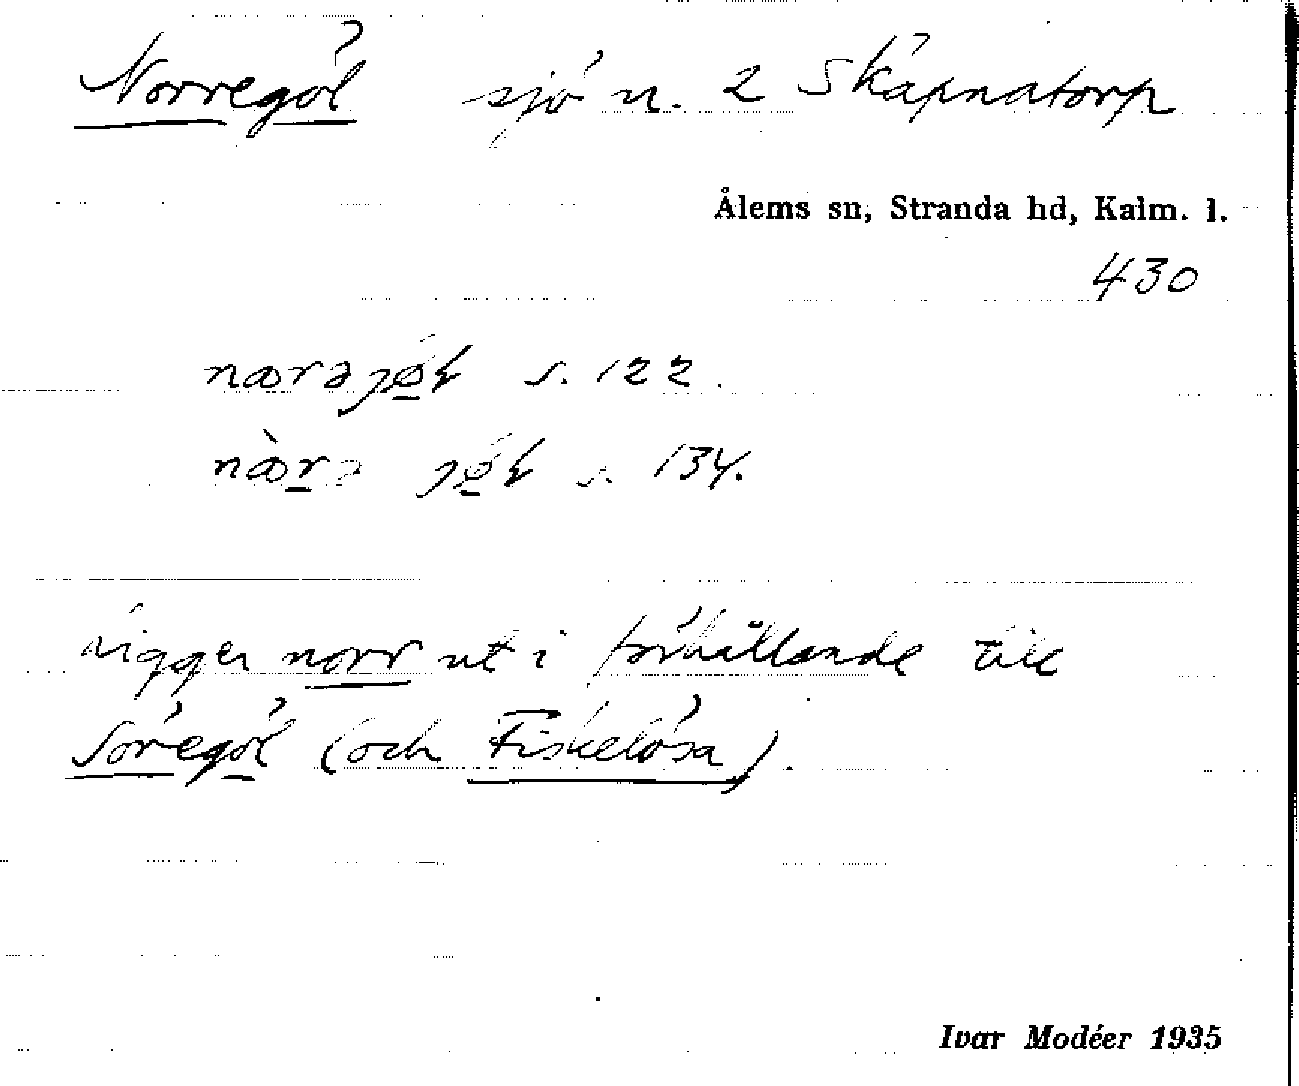 Norregöl sjö n. 2 Skäpnatorp
Ålems sn, Stranda hd, Kalm. l.
430
s. 122.
s. 134.
ligger norr ut i förhållande till
Söregöl (och Fiskelösa).
Ivar Modéer 1935